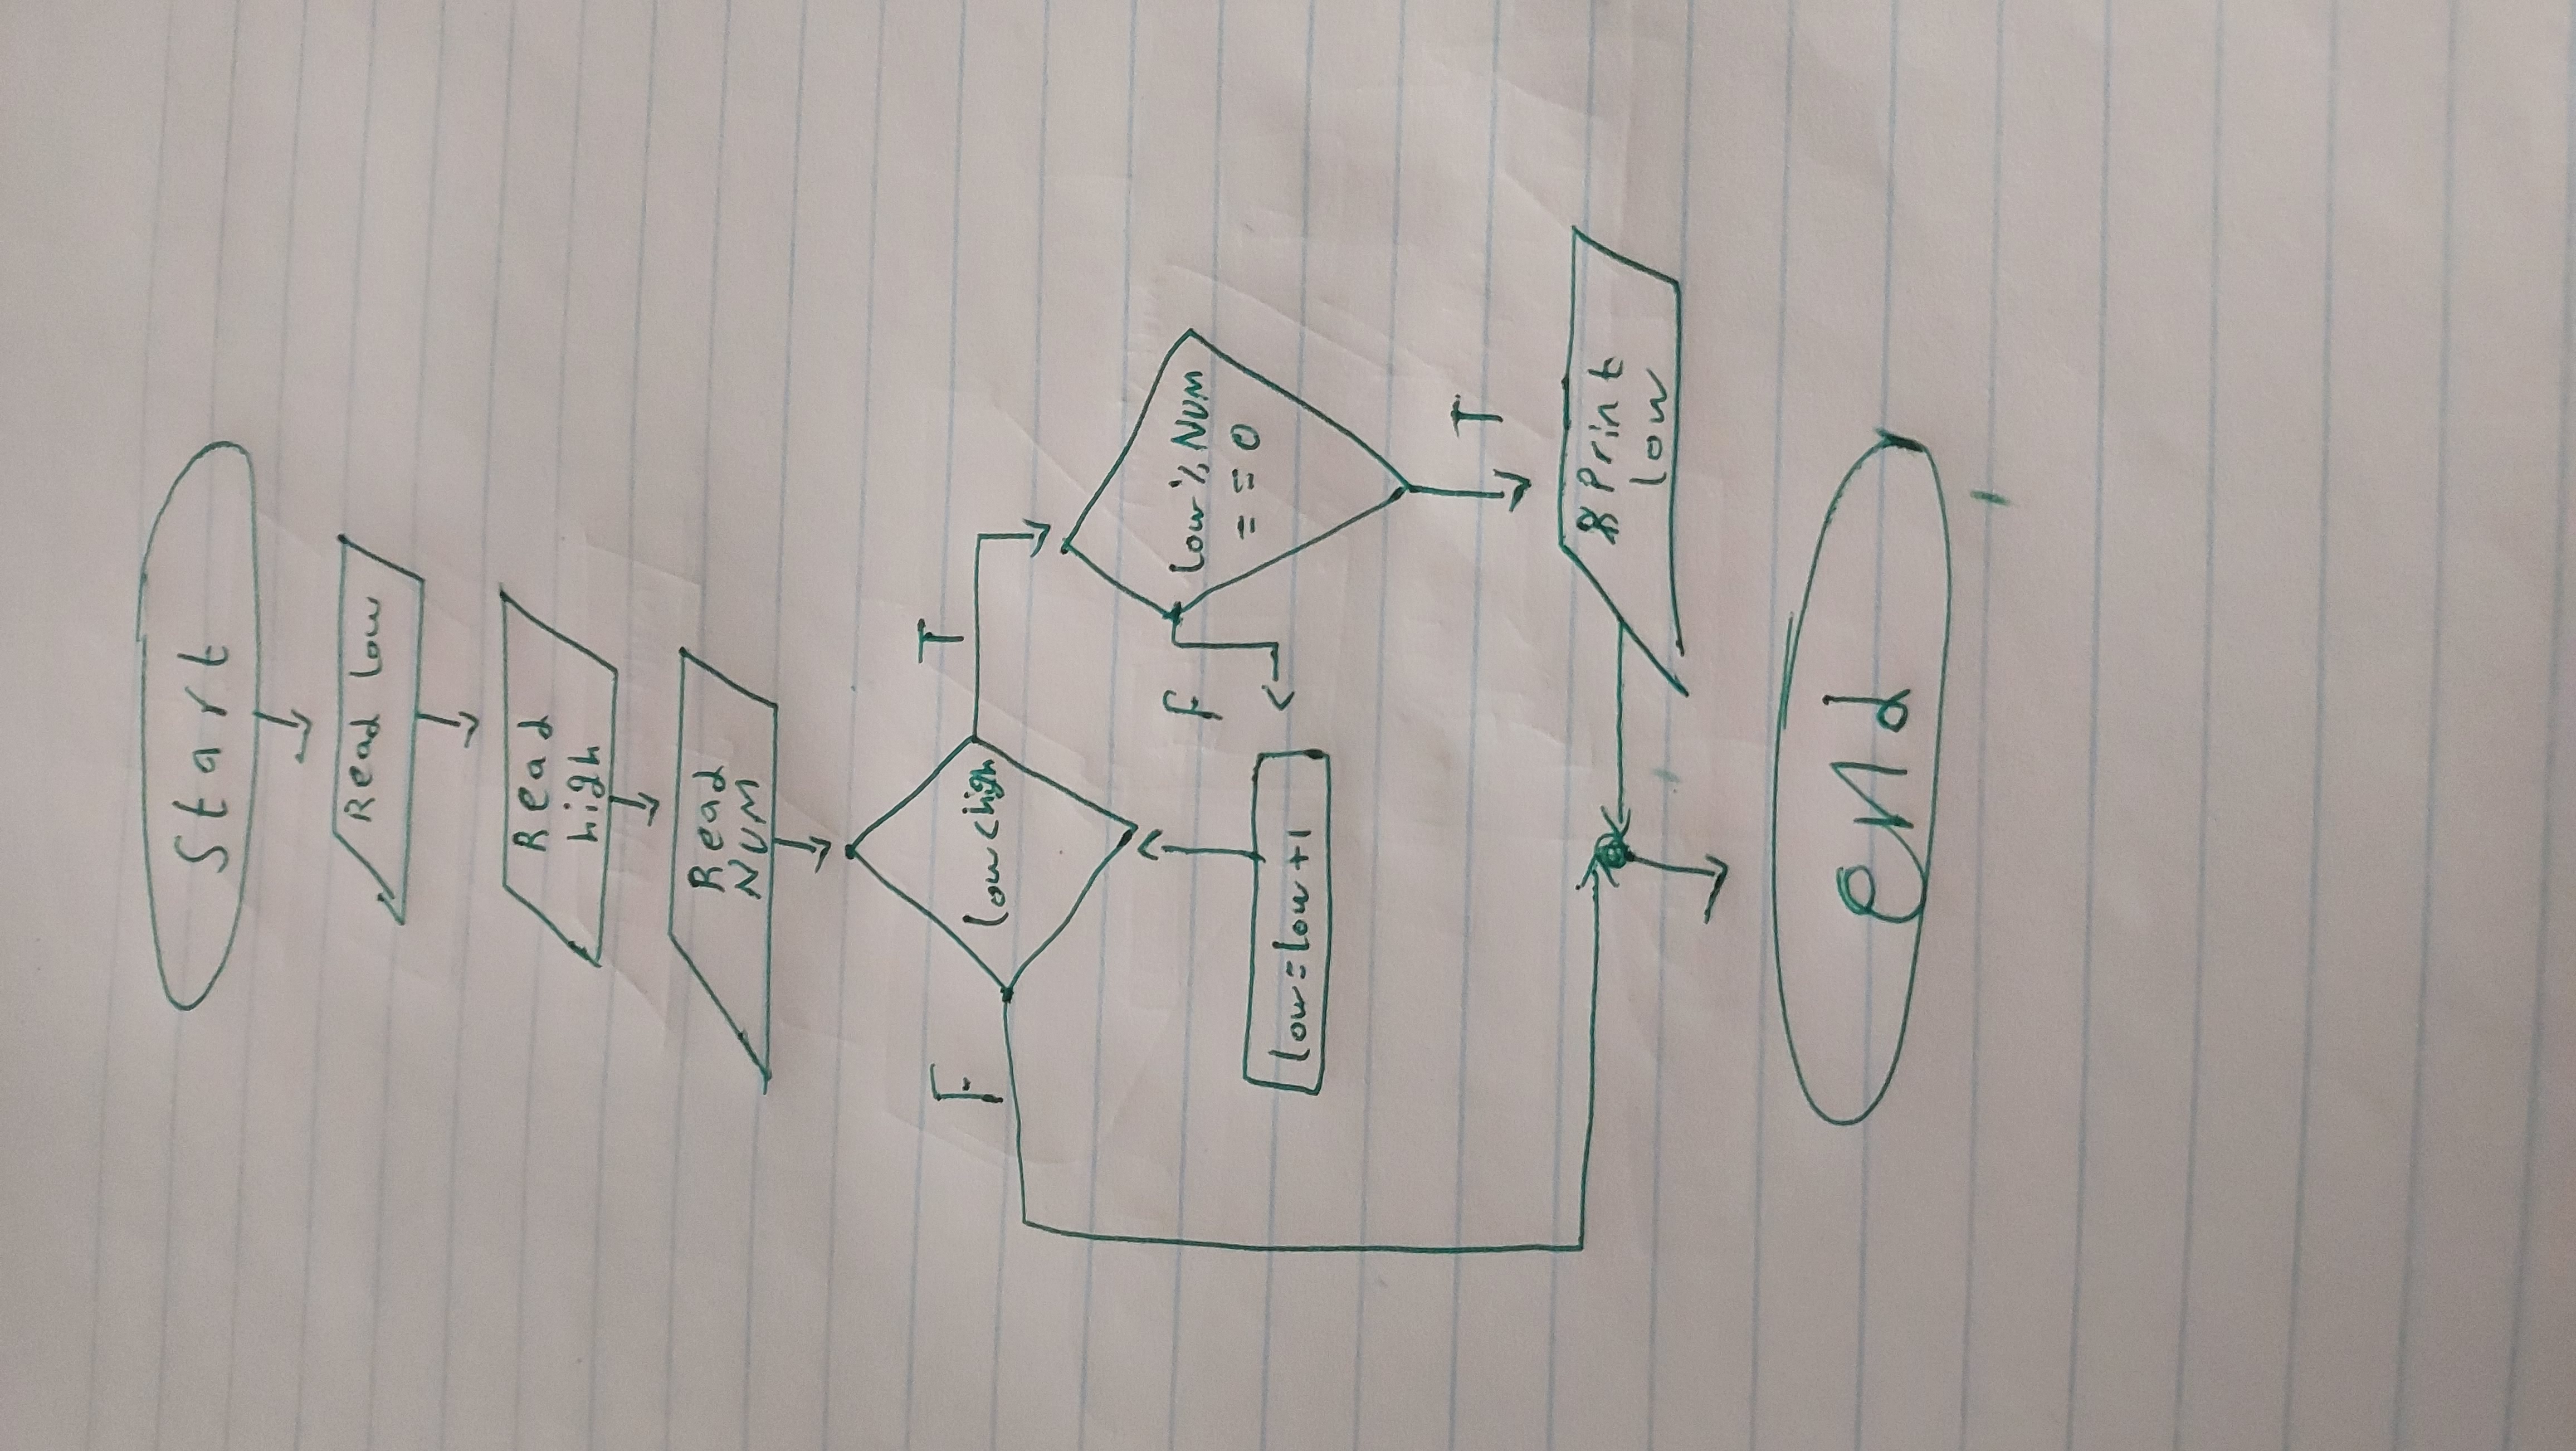 Start
Read low
Read
high
Read
NUM
F
T
low<high
F
low % NUM
= = 0
low=low+1
T
Print
low
end